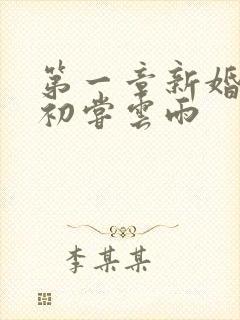 第一章新婚
初嘗雲雨
李某某